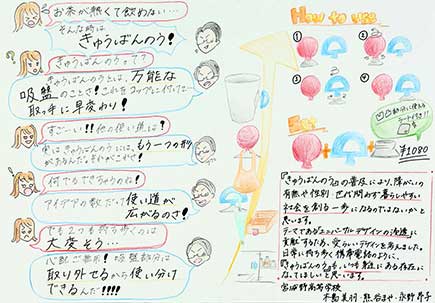 お茶が熱くて飲めない…
そんな時は
きゅうばんのう！
きゅうばんのうって？？
きゅうばんのうとは、万能な
吸盤のことさ！これをコップに付けて…
取っ手に早変わり！
すご〜い！！他の使い道は？
実はきゅうばんのうには、もう1つの形
があるんだ。
何でもできちゃうのね！
アイデアの数だけ使い道が
広がるのさ！
でも2つも持ち歩くのは
大変そう…
心配ご無用！吸盤部分は
取り外せるから使い分け
できるんだ！
How to use
①
②
③
④
¥1080
『きゅうばんのう』の普及により、障がいの
有無や性別・世代問わず暮らしやすい
社会を創る一歩になるのではないかと
思います。
テーマである「ユニバーサルデザインの浸透」に
貢献するため、愛らしいデザインを考えました。
日常に持ち歩く携帯電話のように、
『きゅうばんのう』も、いつも身近にある存在に
なってほしいと思います。
宮城野高等学校